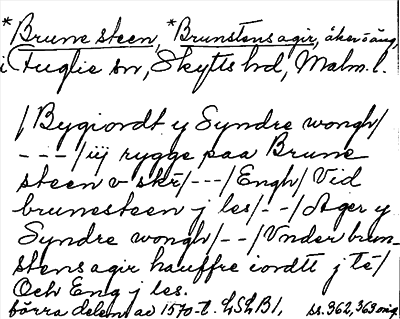 *Brune steen, *Brunstens agir, åker o äng,
i Fuglie sn, Skytts hd, Malm. l.
/Bygiordt y Syndre wongh/
---/iij rygge paa Brune
steen v skr/---/Engh/Vid
brunesteen j les/--/Ager y
Syndre wongh/--/Vnder brun-
stens agir hauffre iordt j te/
Och Eng j les.
förra delen av 1570-t. LSLB1, ss. 362, 363 orig.